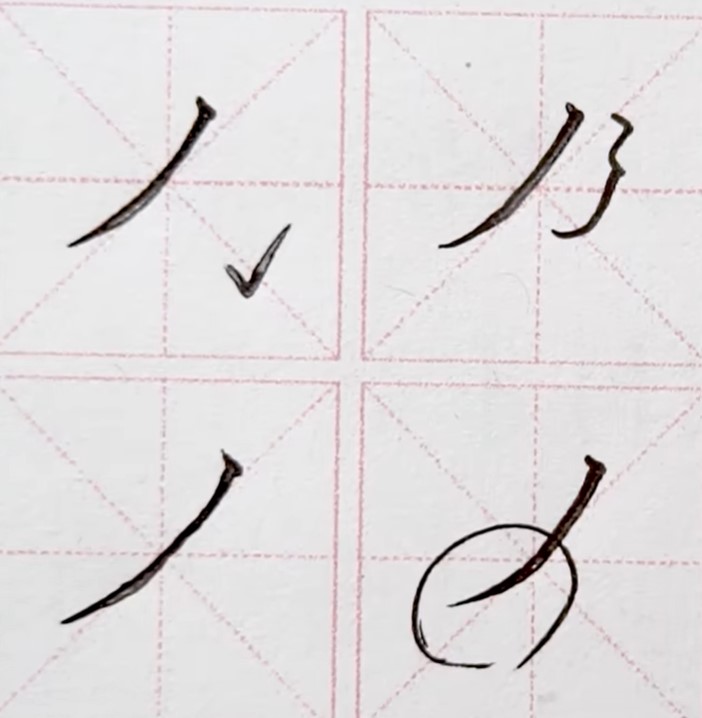 丿 ✓ 丿
丿 丿